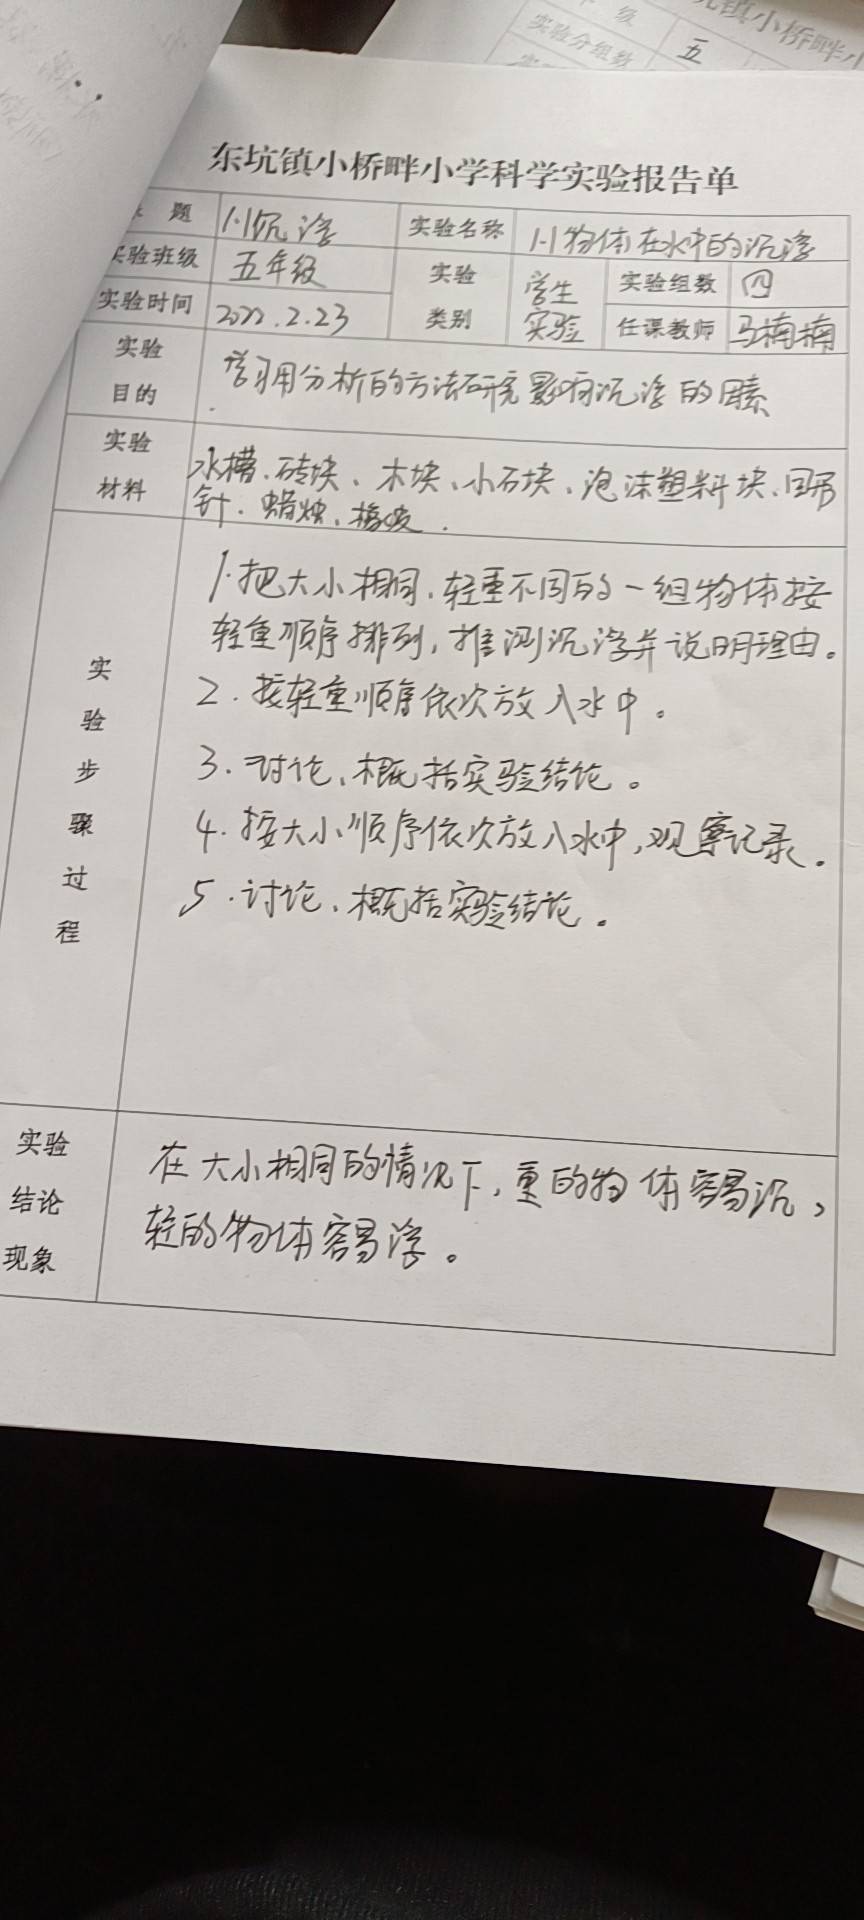 年 级
五
镇小桥畔小
实验分组数
东坑镇小桥畔小学科学实验报告单
题
1.1沉浮
实验名称
1.1物体在水中的沉浮
实验班级
五年级
实验
类别
学生
实验
实验组数
四
实验时间
2022.2.23
任课教师
马楠楠
实验
目的
学习用分析的方法研究影响沉浮的因素
实验
材料
水槽、砖块、木块、小石块、泡沫塑料块、回形
针、蜡烛、橡皮.
实
验
步
骤
过
程
1.把大小相同,轻重不同的一组物体按
轻重顺序排列,推测沉浮并说明理由。
2.按轻重顺序依次放入水中。
3.讨论、概括实验结论。
4.按大小顺序依次放入水中,观察记录.
5.讨论、概括实验结论。
实验
结论
现象
在大小相同的情况下,重的物体容易沉,
轻的物体容易浮。